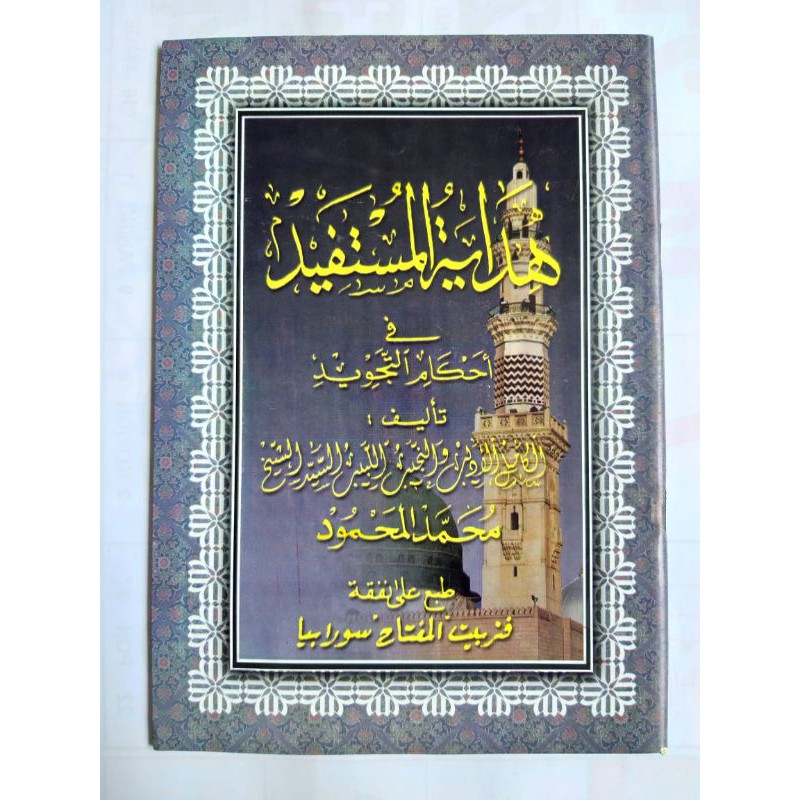 هِدَايَةُ الْمُسْتَفِيْدْ
في
أحْكَامِ التَّجْوِيْدِ
تأليف :
الكامل الأديب والنجيب اللبيب السيد الشيخ
مُحَمَّدْ الْمَحْمُوْدْ
طبع على نفقة
فنربيت "المفتاح" سورابيا